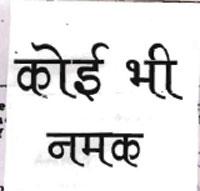 कोई भी
नमक